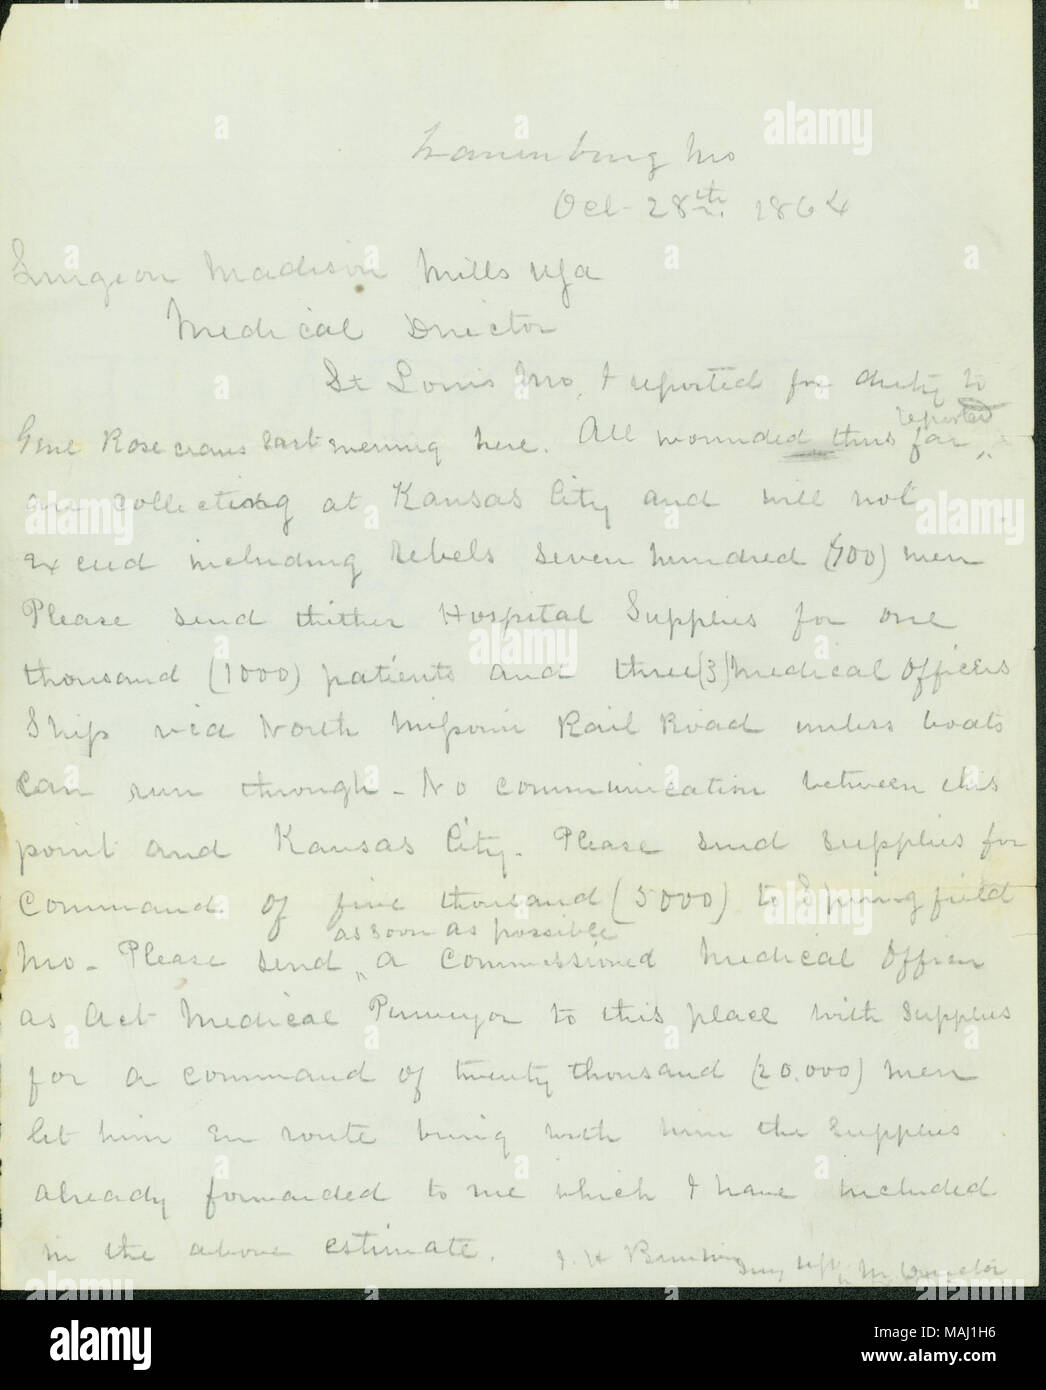 Mo
Oct 28th. 1864
Surgeon Madison Mills USA
Medical Director
St Louis Mo, I reported for duty to
reported
Genl Rosecrans last evening here. All wounded thus far "
are collecting at Kansas City and will not
exceed including Rebels Seven hundred (700) men
Please send thither Hospital Supplies for one
thousand (1000) patients and three (3) Medical Officers
Ship via North Missouri Rail Road unless boats
can run through - No communication between this
point and Kansas City. Please send supplies for
Command of five thousand (5000) to Springfield
as soon as possible
Mo - Please send " a Commissioned Medical Officer
as Act Medical Purveyor to this place with supplies
for a command of twenty thousand (20.000) men
let him en route bring with him the supplies
already forwarded to me which I have included
in the above estimate.
J. H Surg M Director
alamy
Image ID: MAJ1H6
www.alamy.com